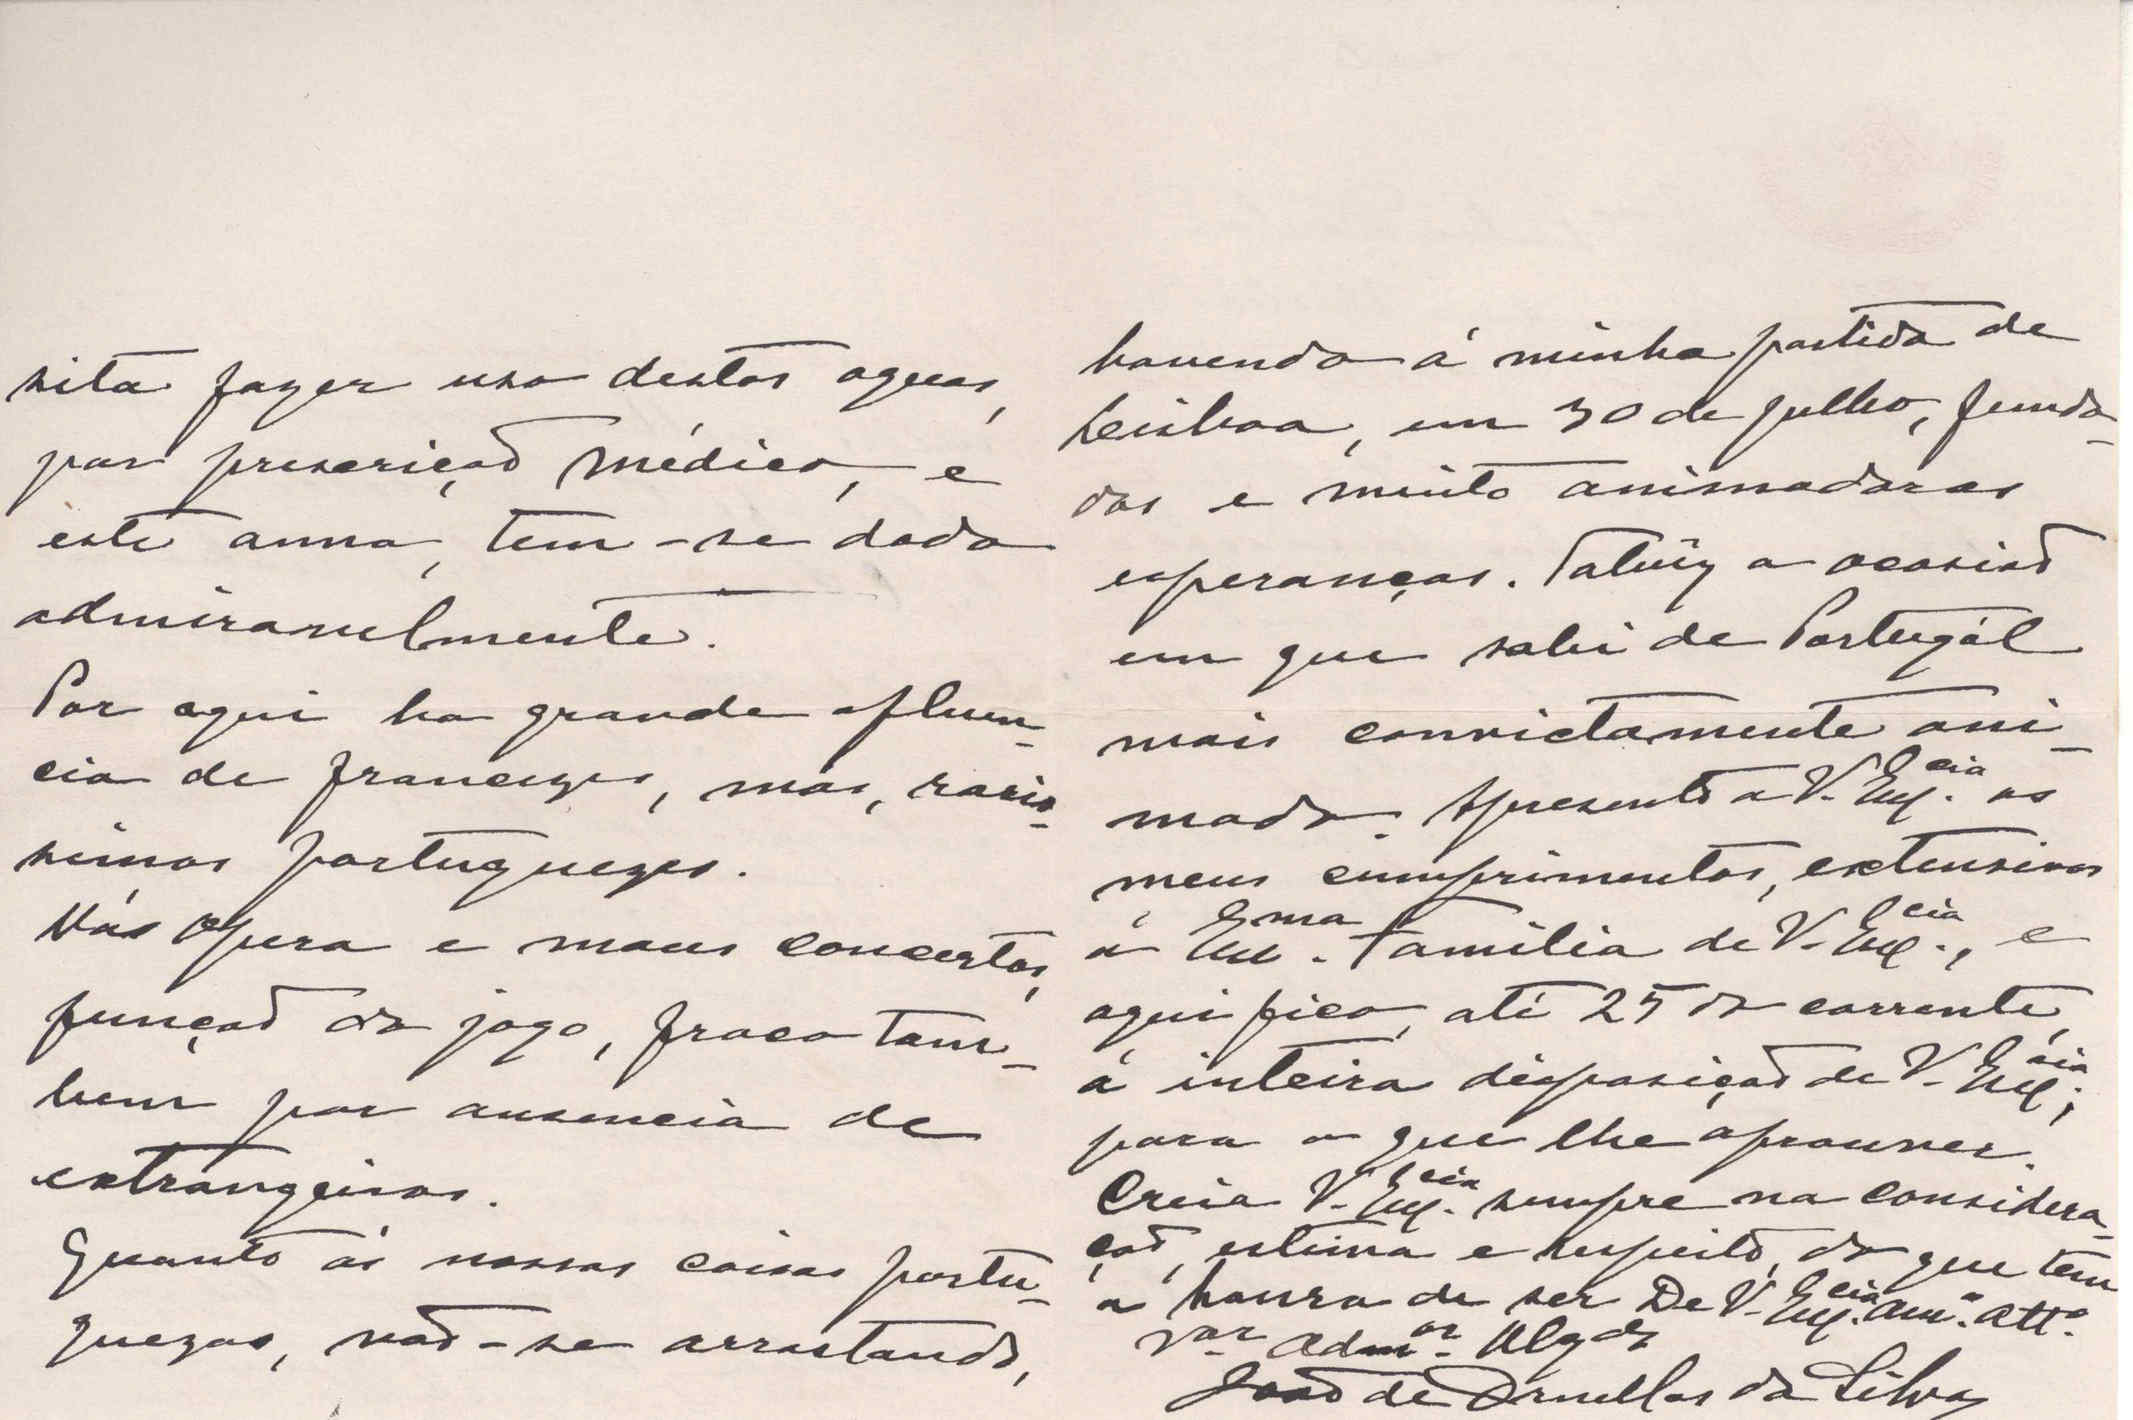 sita fazer uso destas aguas,
por prescrição médica, e
este anno, tem-se dado
admiravelmente.
Por aqui ha grande afluen-
cia de francezes, mas, raris-
simos portuguezes.
Más opera e maus concertos,
função do jogo, fraco tam-
bem por ausencia de
extrangeiros.
Quanto ás nossas coisas portu-
guezas, vão-se arrastando,
havendo á minha partida de
Lisboa, em 30 de julho, funda-
das e muito animadoras
esperanças. Talvez a ocasião
em que sahi de Portugál
mais convictamente ani-
mado. Apresento a V. Exª.cia os
meus cumprimentos, extensivos
á Exma. Familia de V. Excia., e
aqui fico, até 25 do corrente,
á inteira disposição de V. Excia.,
para o que lhe aprouver.
Creia V. Excia. sempre na considera-
ção, estima e respeito, do que tem
a honra de ser De V. Excia. amº. attº.
vor. admor. obgdo
João de Ornellas da Silva